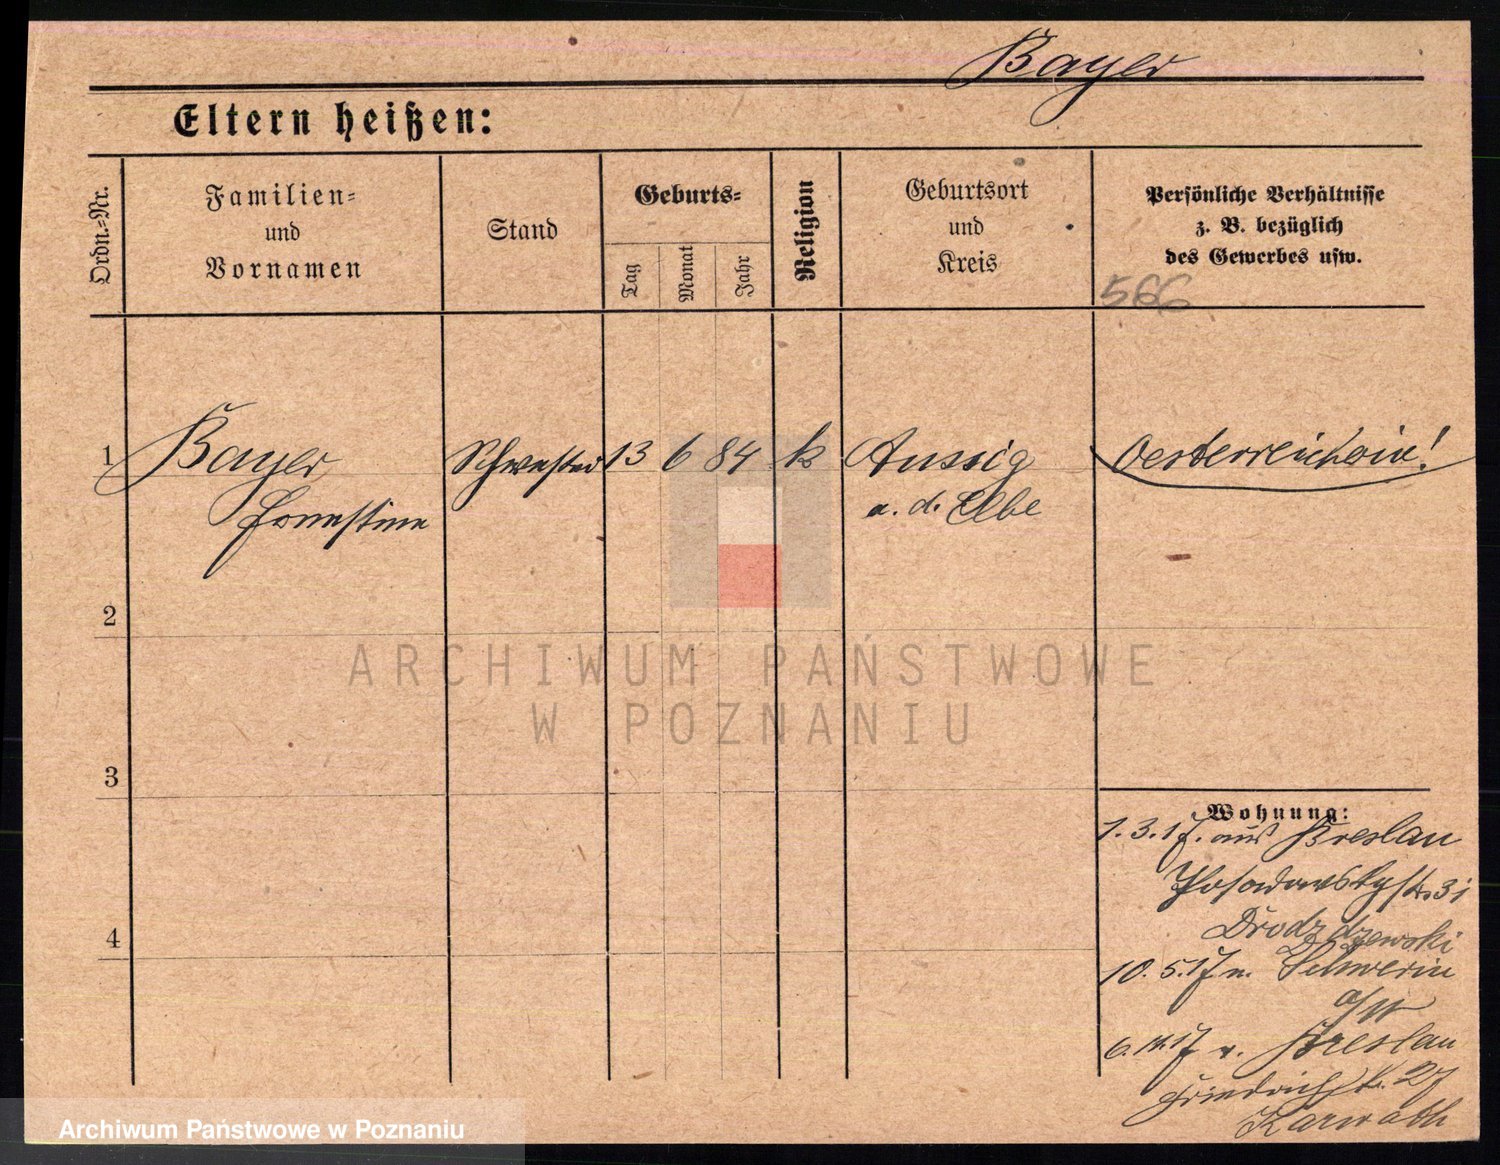 Bayer
Eltern heißen:
Ordn.-Nr.
Familien- und Vornamen
Stand
Geburts-
Tag
Monat
Jahr
Religion
Geburtsort und Kreis
Persönliche Verhältnisse
z. B. bezüglich
des Gewerbes usw.
566
1 Bayer Schwester 13 6 84 k Aussig Oesterreicherin!
Ernestine a. d. Elbe
2
3
4
Wohnung:
1.3.17. aus Breslau
Posadowskystr. 31
Drodzdzewski
10.5.17 n. Schwerin
a/W
6.11.17 v. Breslau
Friedrichstr. 27
Karwath
ARCHIWUM PAŃSTWOWE
W POZNANIU
Archiwum Państwowe w Poznaniu